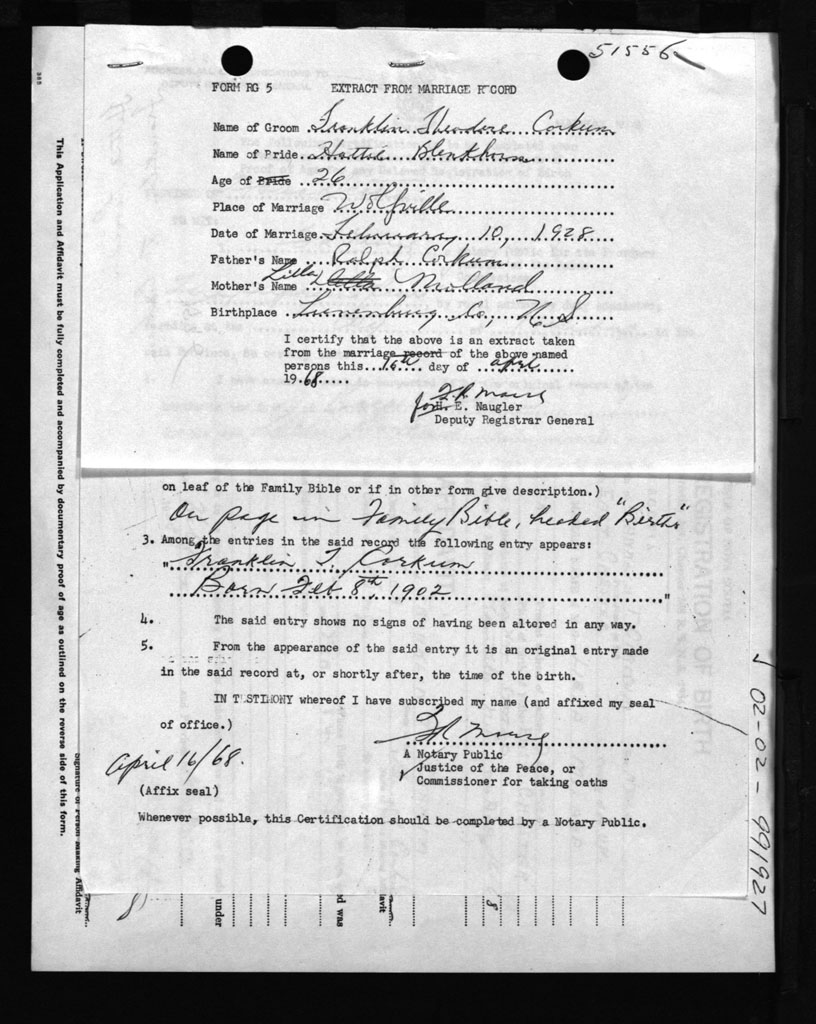 51556
FORM RG 5 EXTRACT FROM MARRIAGE RECORD
Name of Groom Franklin Theodore Corkum
Name of Pride Hattie Blenkhorn
Age of Bride 26
Place of Marriage Wolfville
Date of Marriage February 10, 1928
Father's Name Ralph Corkum
Lilla
Mother's Name Molland
Birthplace Lunenburg Co, N.S
I certify that the above is an extract taken
from the marriage record of the above named
persons this 16th day of April
1968
for H. E. Naugler
Deputy Registrar General
on leaf of the Family Bible or if in other form give description.)
On page in Family Bible, headed "Births"
3. Among the entries in the said record the following entry appears:
"Franklin T. Corkum
Born Feb 8th, 1902"
4. The said entry shows no signs of having been altered in any way.
5. From the appearance of the said entry it is an original entry made
in the said record at, or shortly after, the time of the birth.
IN TESTIMONY whereof I have subscribed my name (and affixed my seal
of office.)
A Notary Public
Justice of the Peace, or
Commissioner for taking oaths
April 16/68.
(Affix seal)
Whenever possible, this Certification should be completed by a Notary Public.
This Application and Affidavit must be fully completed and accompanied by documentary proof of age as outlined on the reverse side of this form.
Signature of Person Making Affidavit
under
d was
avit
REGISTRATION OF BIRTH
02-02-991927